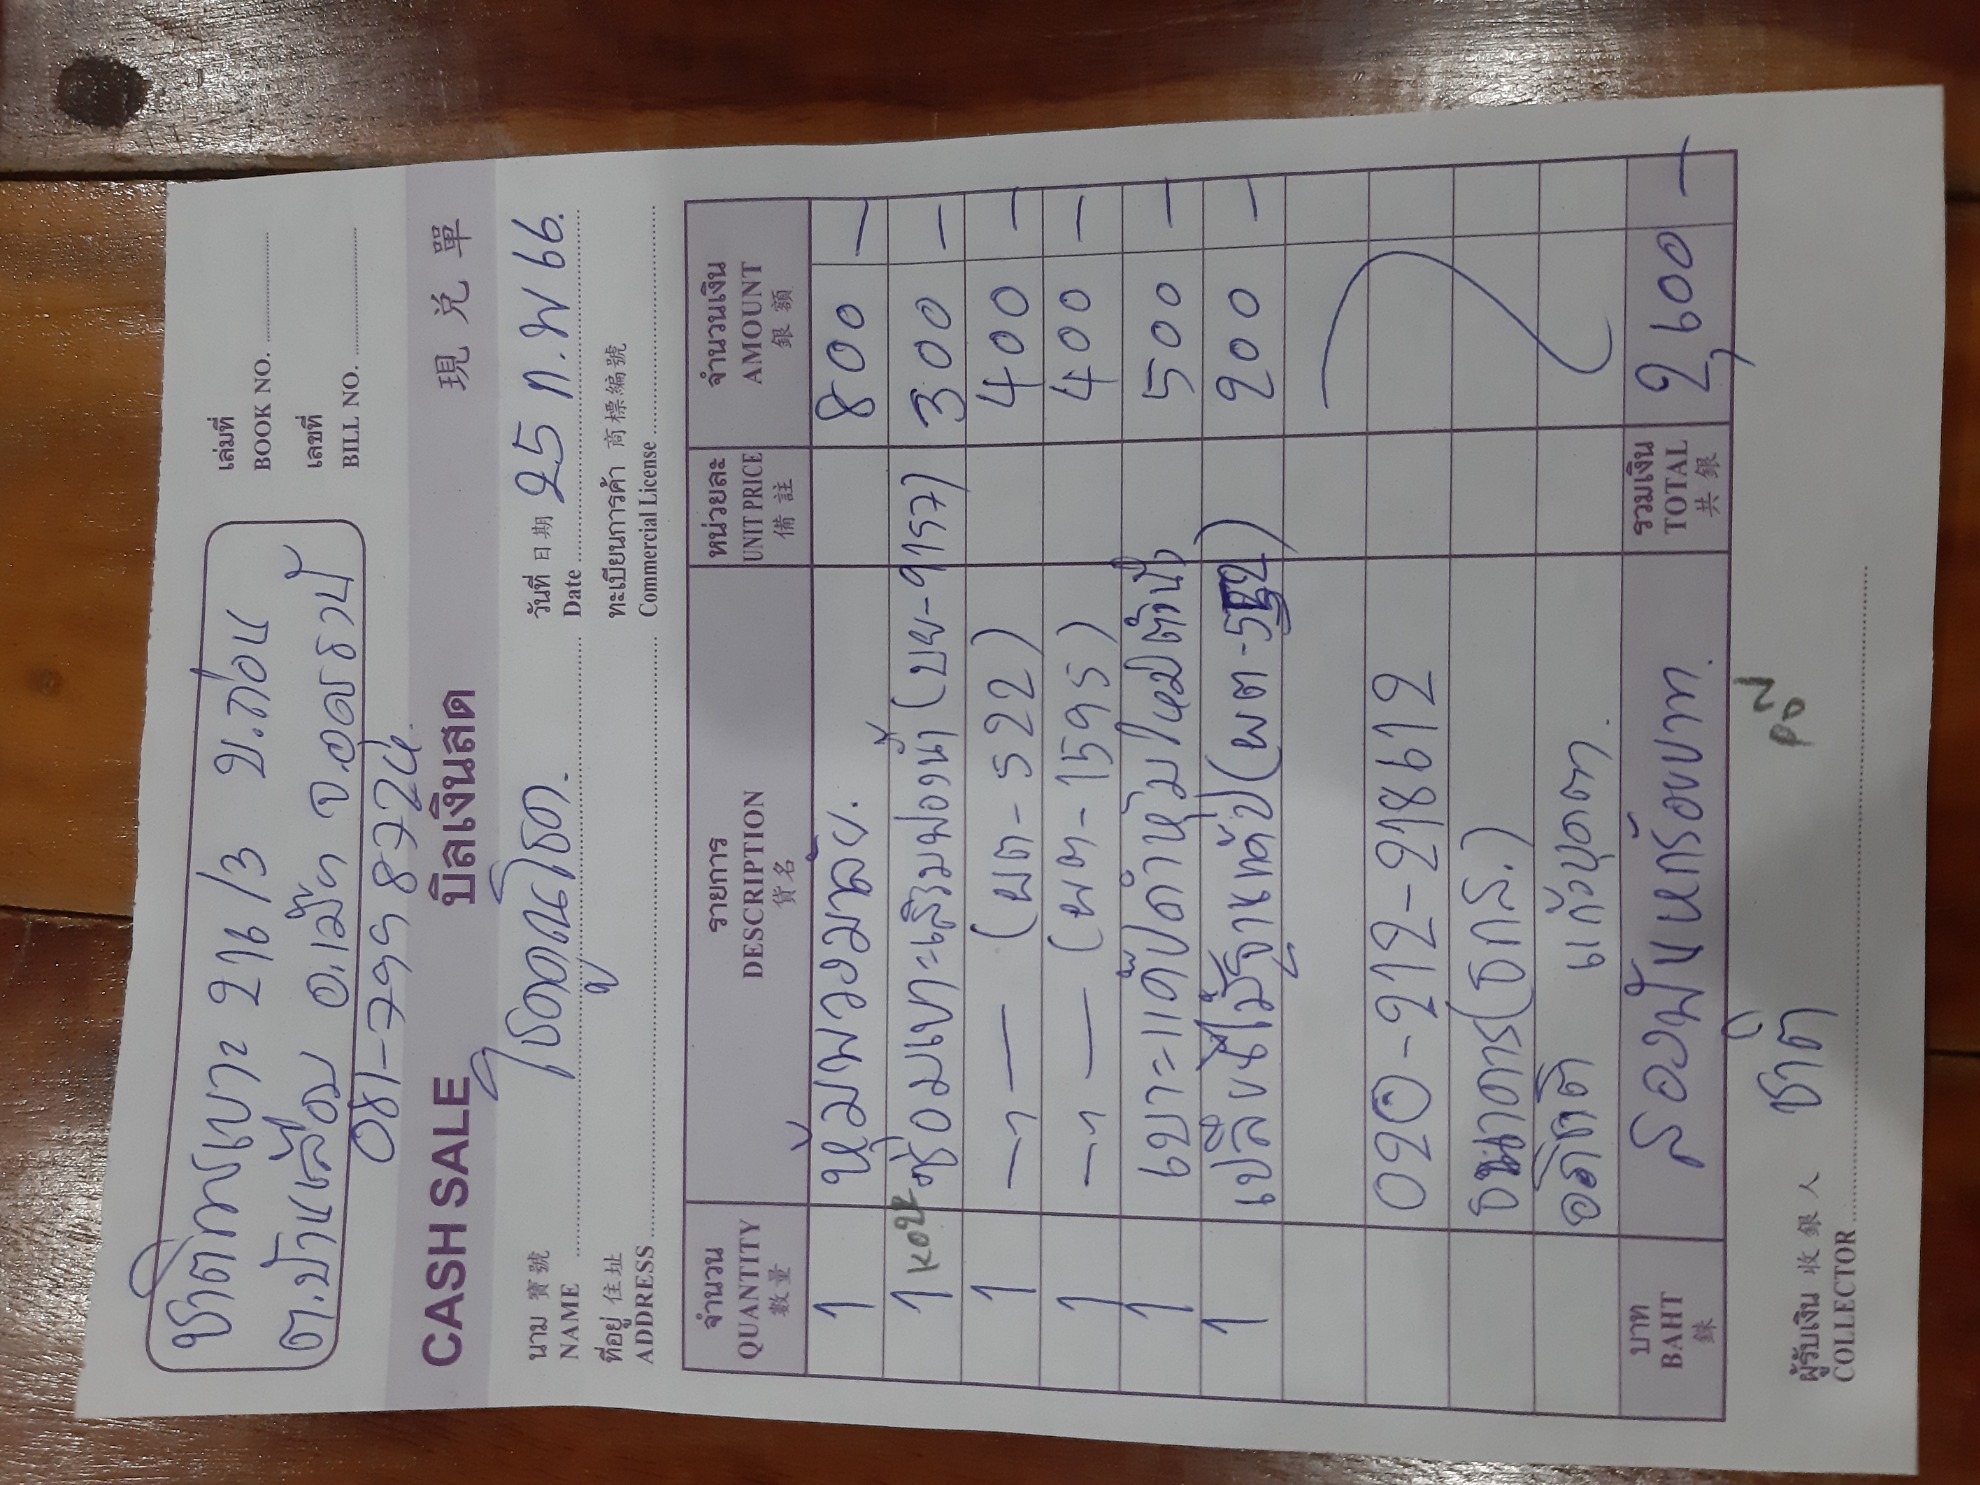 ชาติการเบาะ 214/3 บ.ถ่อน
เล่มที่
BOOK NO.
ต.ป่าเลื่อม อ.เมือง จ.อุดรธานี
เลขที่
BILL NO.
081-7998724
CASH SALE บิลเงินสด 現 兌 單
นาม 寶號
NAME
วันที่ 日期 25 ก.พ 66.
Date
ที่อยู่ 住址
ADDRESS
ทะเบียนการค้า 商標編號
Commercial License
จำนวน รายการ หน่วยละ จำนวนเงิน
QUANTITY DESCRIPTION UNIT PRICE AMOUNT
數量 貨名 備註 銀額
1 หุ้มพวงมาลัย. 800 —
1 ซ่อมเบาะเสริมฟองน้ำ (บย-9157) 300 —
1 — า — (ผต-522) 400 —
1 — า — (ผต-1595) 400 —
1 เบาะแค็ปดำหุ้มใหม่ 500 —
1 เปลี่ยนไม้ฐานแค็ป (ผต-522) 200 —
020-212-218612
ธนาคาร (ธกส.)
อภิชิต แก้วบุดตา.
บาท
BAHT
銖
สองพันหกร้อยบาท.
รวมเงิน
TOTAL
共銀
2,600 —
ผู้รับเงิน 收銀人 ชาติ
COLLECTOR